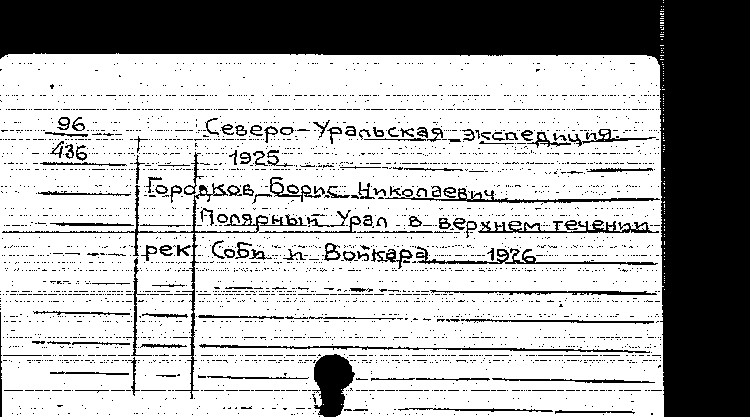 96
436
Северо-Уральская экспедиция.
1925
Городков, Борис Николаевич
Полярный Урал в верхнем течении
рек Соби и Войкара 1926